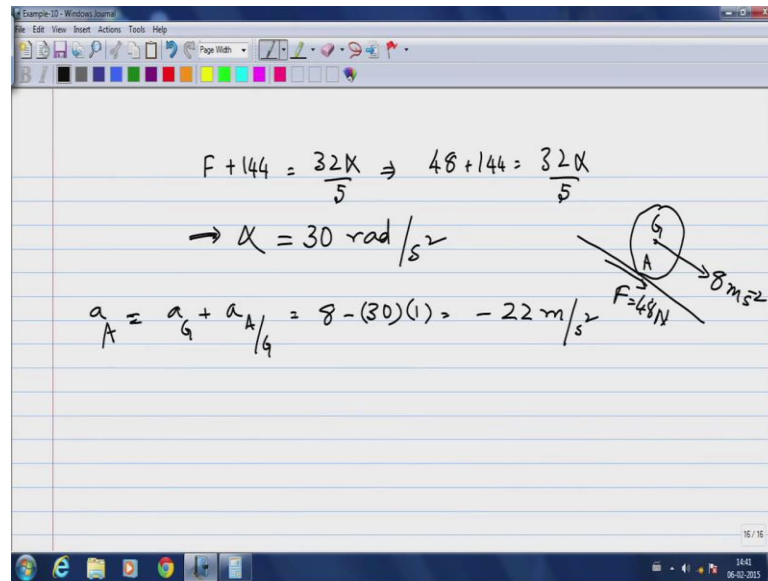 Example-10 - Windows Journal
File Edit View Insert Actions Tools Help
Page Width
B I
F + 144 = 32α/5 ⇒ 48 + 144 = 32α/5
→ α = 30 rad/s²
a_A = a_G + a_A/G = 8 - (30)(1) = - 22 m/s²
G
A
8 ms⁻²
F = 48N
16 / 16
14:41
06-02-2015